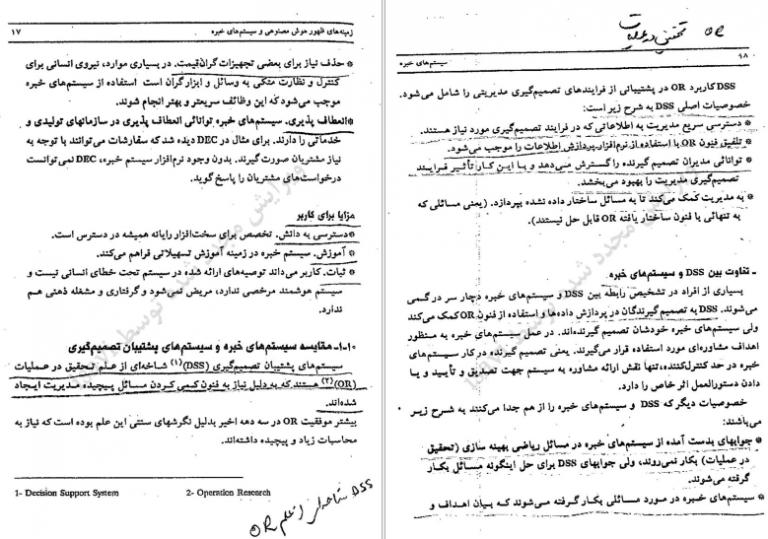 زمینه‌های ظهور هوش مصنوعی و سیستم‌های خبره ۱۷
* حذف نیاز برای بعضی تجهیزات گران‌قیمت. در بسیاری موارد، نیروی انسانی برای
کنترل و نظارت متکی به وسائل و ابزار گران است استفاده از سیستم‌های خبره
موجب می‌شود که این وظائف سریعتر و بهتر انجام شوند.
* انعطاف پذیری. سیستم‌های خبره توانائی انعطاف پذیری در سازمانهای تولیدی و
خدماتی را دارند. برای مثال در DEC دیده شد که سفارشات می‌توانند با توجه به
نیاز مشتریان صورت گیرند. بدون وجود نرم‌افزار سیستم خبره، DEC نمی‌توانست
درخواست‌های مشتریان را پاسخ گوید.
مزایا برای کاربر
* دسترسی به دانش. تخصص برای سخت‌افزار رایانه همیشه در دسترس است.
* آموزش. سیستم خبره در زمینه آموزش تسهیلاتی فراهم می‌کند.
* ثبات. کاربر می‌داند توصیه‌های ارائه شده در سیستم تحت خطای انسانی نیست و
سیستم هوشمند مرخصی ندارد، مریض نمی‌شود و گرفتاری و مشغله ذهنی هم
ندارد.
۱-۱۰- مقایسه سیستم‌های خبره و سیستم‌های پشتیبان تصمیم‌گیری
سیستم‌های پشتیبان تصمیم‌گیری (DSS)(۱) شاخه‌ای از علم تحقیق در عملیات
(OR)(۲) هستند که به دلیل نیاز به فنون کمی کردن مسائل پیچیده مدیریت ایجاد
شده‌اند.
بیشتر موفقیت OR در سه دهه اخیر بدلیل نگرشهای سنتی این علم بوده است که نیاز به
محاسبات زیاد و پیچیده داشته‌اند.
1- Decision Support System 2- Operation Research
DSS شاخه‌ای از علم OR
OR تحقیق در عملیات
۱۸ سیستم‌های خبره
DSS کاربرد OR در پشتیبانی از فرایندهای تصمیم‌گیری مدیریتی را شامل می‌شود.
خصوصیات اصلی DSS به شرح زیر است:
* دسترسی سریع مدیریت به اطلاعاتی که در فرایند تصمیم‌گیری مورد نیاز هستند.
* تلفیق فنون OR با استفاده از نرم‌افزار پردازش اطلاعات را موجب می‌شود.
* توانائی مدیران تصمیم گیرنده را گسترش می‌دهد و با این کار تأثیر فرایند
تصمیم‌گیری مدیریت را بهبود می‌بخشد.
* به مدیریت کمک می‌کند تا به مسائل ساختار داده نشده بپردازد. (یعنی مسائلی که
به تنهائی با فنون ساختار یافته OR قابل حل نیستند).
ـ تفاوت بین DSS و سیستم‌های خبره
بسیاری از افراد در تشخیص رابطه بین DSS و سیستم‌های خبره دچار سر در گمی
می‌شوند. DSS به تصمیم گیرندگان در پردازش داده‌ها و استفاده از فنون OR کمک می‌کند
ولی سیستم‌های خبره خودشان تصمیم گیرنده‌اند. در عمل سیستم‌های خبره به منظور
اهداف مشاوره‌ای مورد استفاده قرار می‌گیرند. یعنی تصمیم گیرنده در کار سیستم‌های
خبره در حد کنترل‌کننده، تنها نقش ارائه مشاوره به سیستم جهت تصدیق و تأیید و یا
دادن دستورالعمل اثر خاص را دارد.
خصوصیات دیگر که DSS و سیستم‌های خبره را از هم جدا می‌کنند به شرح زیر
می‌باشند:
* جوابهای بدست آمده از سیستم‌های خبره در مسائل ریاضی بهینه سازی (تحقیق
در عملیات) بکار نمی‌روند، ولی جوابهای DSS برای حل اینگونه مسائل بکار
گرفته می‌شوند.
* سیستم‌های خبره در مورد مسائلی بکار گرفته می‌شوند که بیان اهداف و